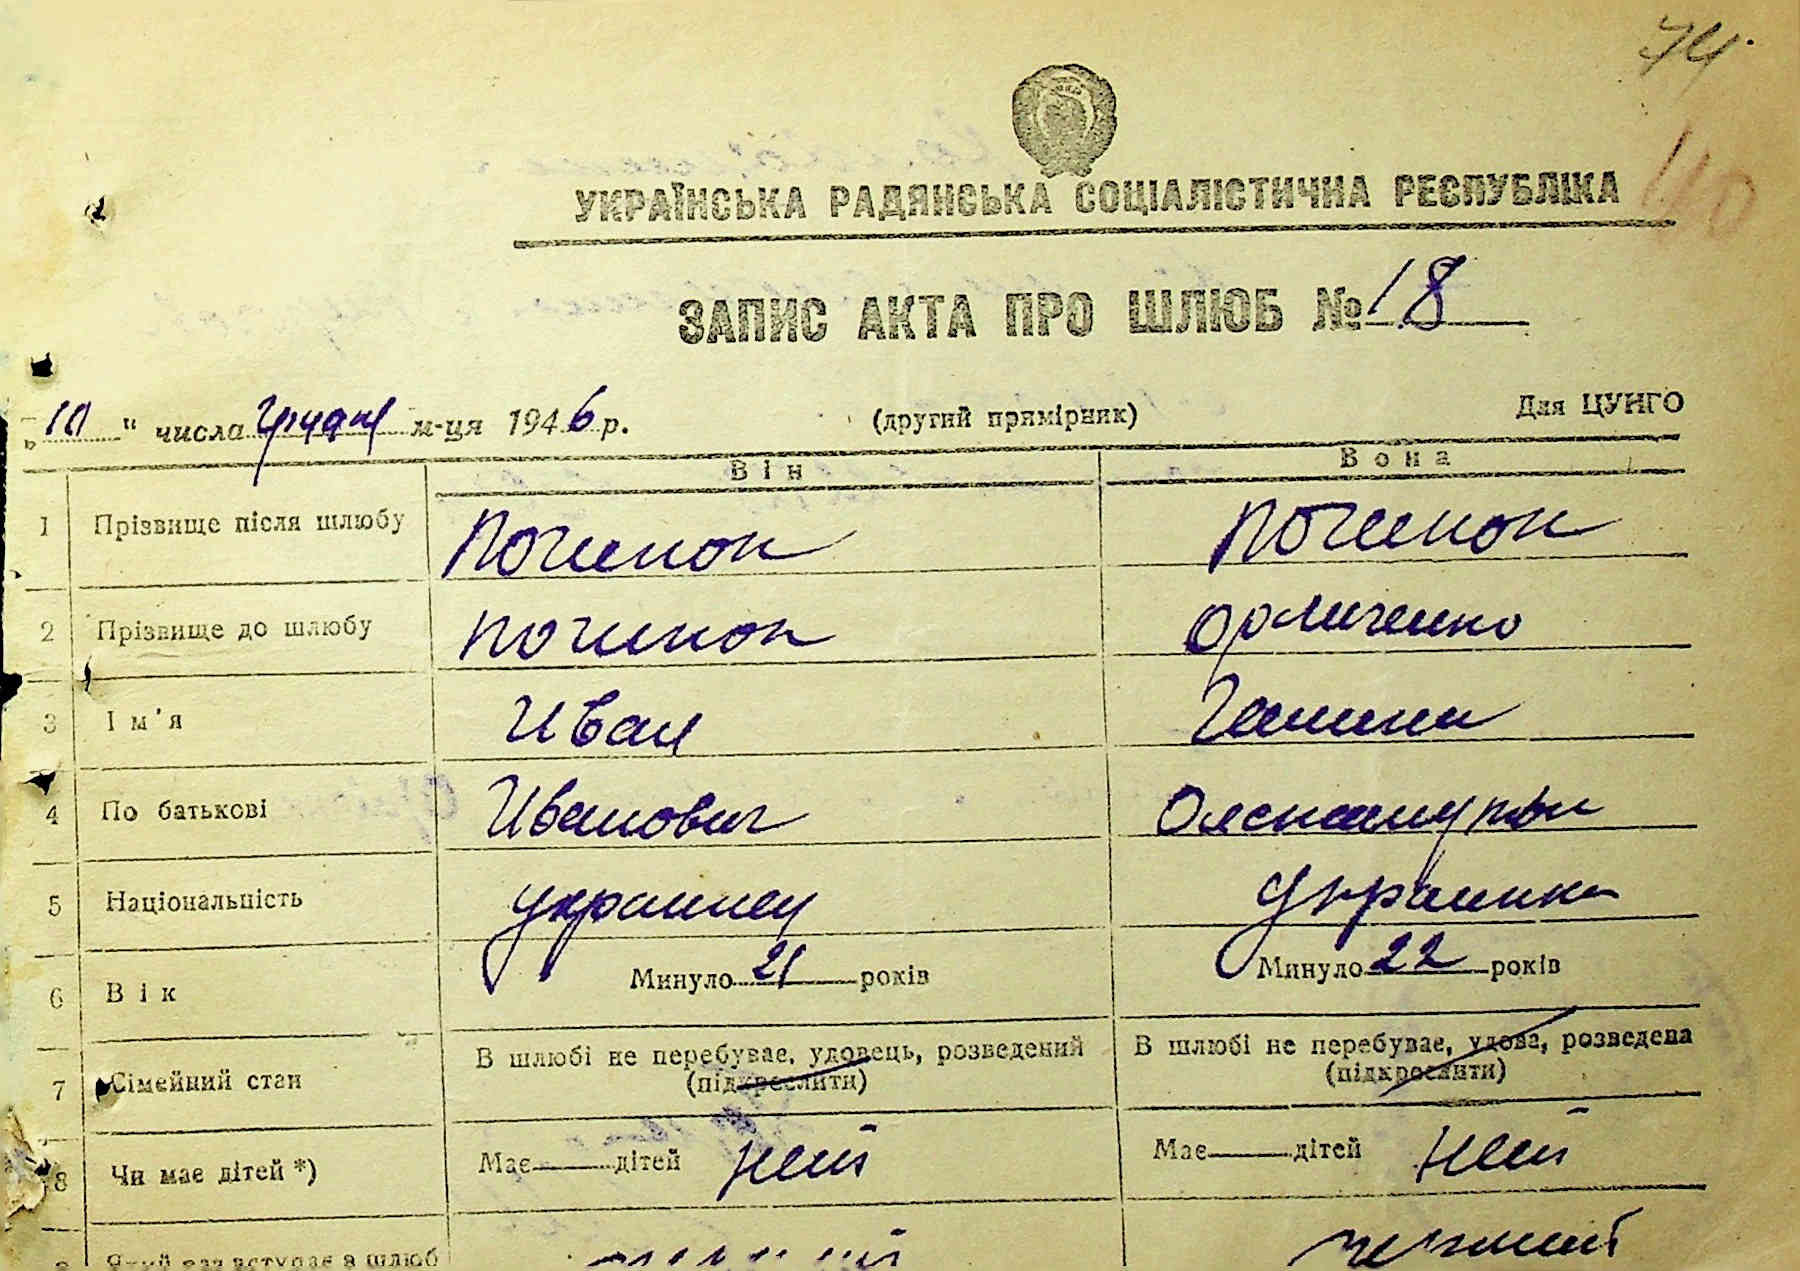 74.
110
УКРАЇНСЬКА РАДЯНСЬКА СОЦІАЛІСТИЧНА РЕСПУБЛІКА
ЗАПИС АКТА ПРО ШЛЮБ № 18
„10“ числа м-ця 1946 р. (другий примірник) Для ЦУНГО
Він Вона
1 Прізвище після шлюбу Починок Починок
2 Прізвище до шлюбу Починок
3 Ім'я Иван
4 По батькові Иванович
5 Національність украинец Украинка
6 Вік Минуло 21 років Минуло 22 років
7 Сімейний стан В шлюбі не перебуває, удовець, розведений (підкреслити) В шлюбі не перебуває, удова, розведена (підкреслити)
8 Чи має дітей *) Має дітей нет Має дітей нет
Який раз вступає в шлюб первый